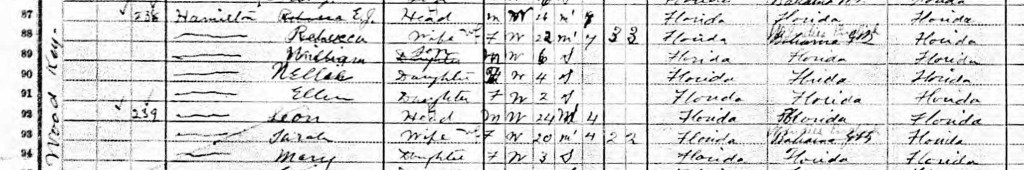 Wood Key -
87 238 Hamilton E.J. Head M W 26 M' 7 Florida Florida Florida
88 — Rebecca Wife F W 22 M' 7 3 3 Florida Bahama Florida
89 — William Son M W 6 S Florida Florida Florida
90 — Nellie Daughter F W 4 S Florida Florida Florida
91 — Ellen Daughter F W 2 S Florida Florida Florida
92 239 — Leon Head M W 24 M' 4 Florida Florida Florida
93 — Sarah Wife F W 20 M' 4 2 2 Florida Bahama Florida
94 — Mary Daughter F W 3 S Florida Florida Florida